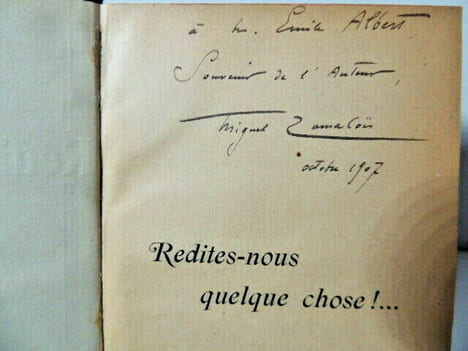 à M. Emile Albert
Souvenir de l'Auteur,
Miguel Zamacoïs
octobre 1907
Redites-nous
quelque chose !...